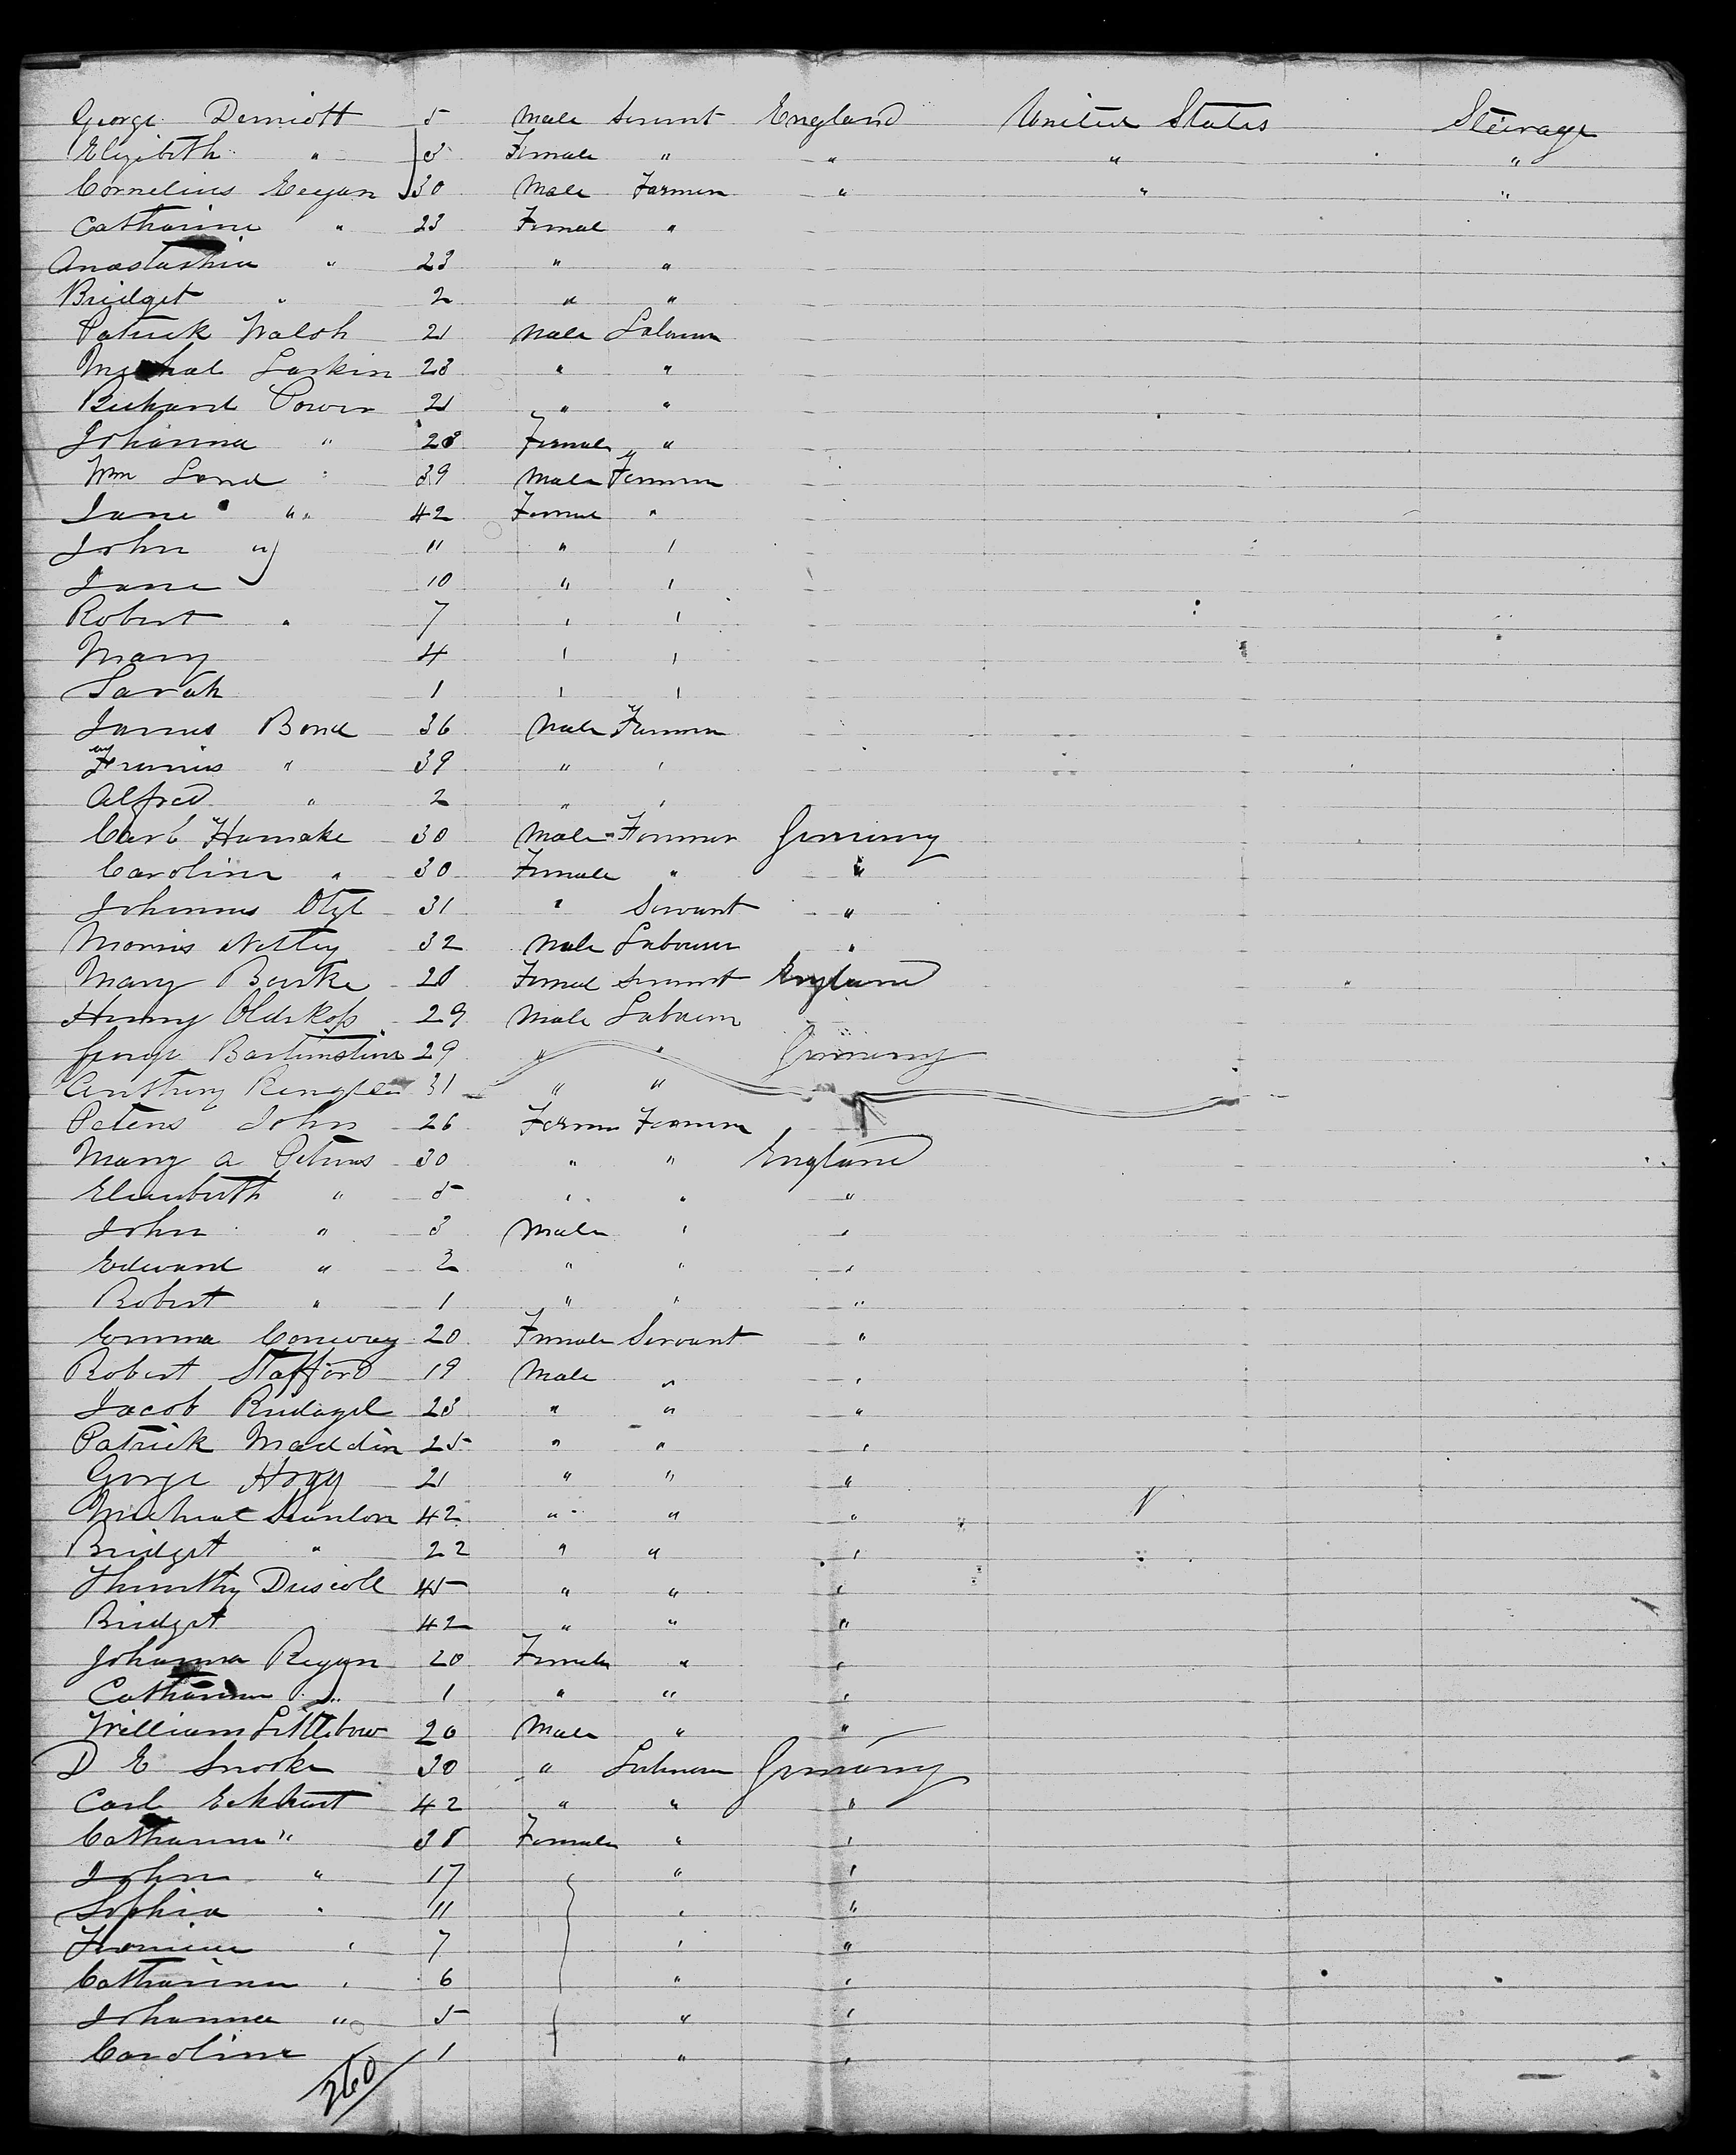 George Dermott 5 Male Servant England United States Steerage
Elizibeth " 3 Female " " " "
Cornelius Keegan 30 Male Farmer " " "
Catharine " 23 Femal "
Anastashia " 23 " "
Bridget " 2 " "
Patrick Walsh 21 Male Labourer
Michal Larkin 23 " "
Richard Power 21 " "
Johanna " 28 Female "
Wm Lond " 39 Male Farmer
Jane " 42 Female "
John " 11 " "
Jane 10 " "
Robert " 7 " "
Mary 4 " "
Sarah 1 " "
James Bond 36 Male Farmer
Francis " 39 " "
Alfred " 2 " "
Carl Hamake 30 Male Farmer Germany
Caroline " 30 Female " "
Johannes 31 " Servant "
Morris 32 Male Labourer "
Mary Burke 28 Femal Servant England
Henry Olderkop 29 Male Labourer
George 29 " " Germany
Anthony 31 " "
Peters John 26 Farmer
Mary A Peters 30 " " England
Elizabeth " 5 " " "
John " 3 Male " "
Edward " 2 " " "
Robert " 1 " " "
Emma Conway 20 Female Servant "
Robert Stafford 19 Male " "
Jacob 23 " " "
Patrick Maddin 25 " " "
George Hogg 21 " " "
Michael Scanlon 42 " " "
Bridget " 22 " " "
Driscoll 45 " " "
Bridget 42 " " "
Johanna Regan 20 Female " "
Catharine " 1 " " "
William Littlebow 20 Male " "
D E Snooke 30 " Labourer Germany
Carl Eckhart 42 " " "
Catharina " 38 Female " "
John " 17 " "
Sophia " 11 " "
7 " "
Catharina " 6 " "
Johanna " 5 " "
Caroline 1 " "
260